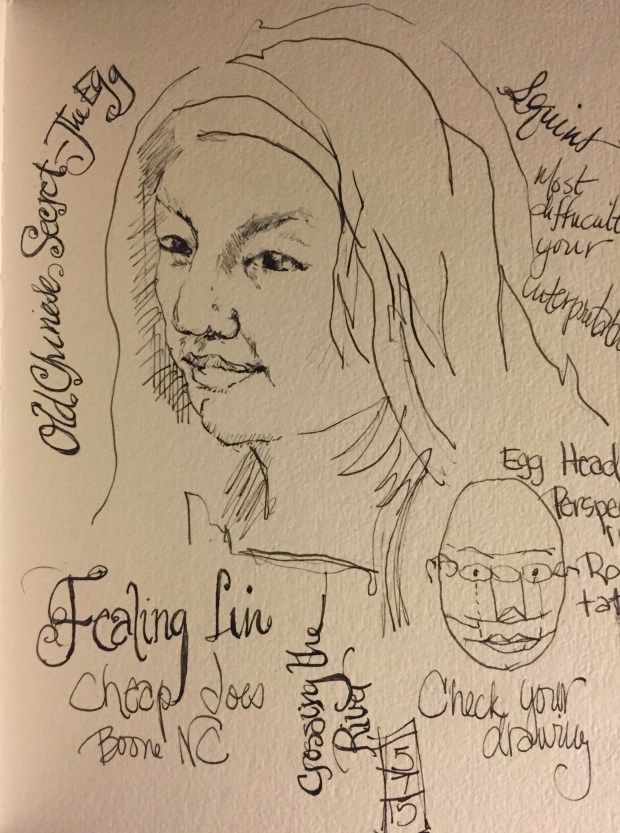 Old Chinese Secrt - The Egg
Squint
Most
diffucult
your
interpretatio
Egg Head
Perspe
Ro
tat
Fealing Lin
Cheap Joes
Boone NC
Crossing the
River
Check your
drawing